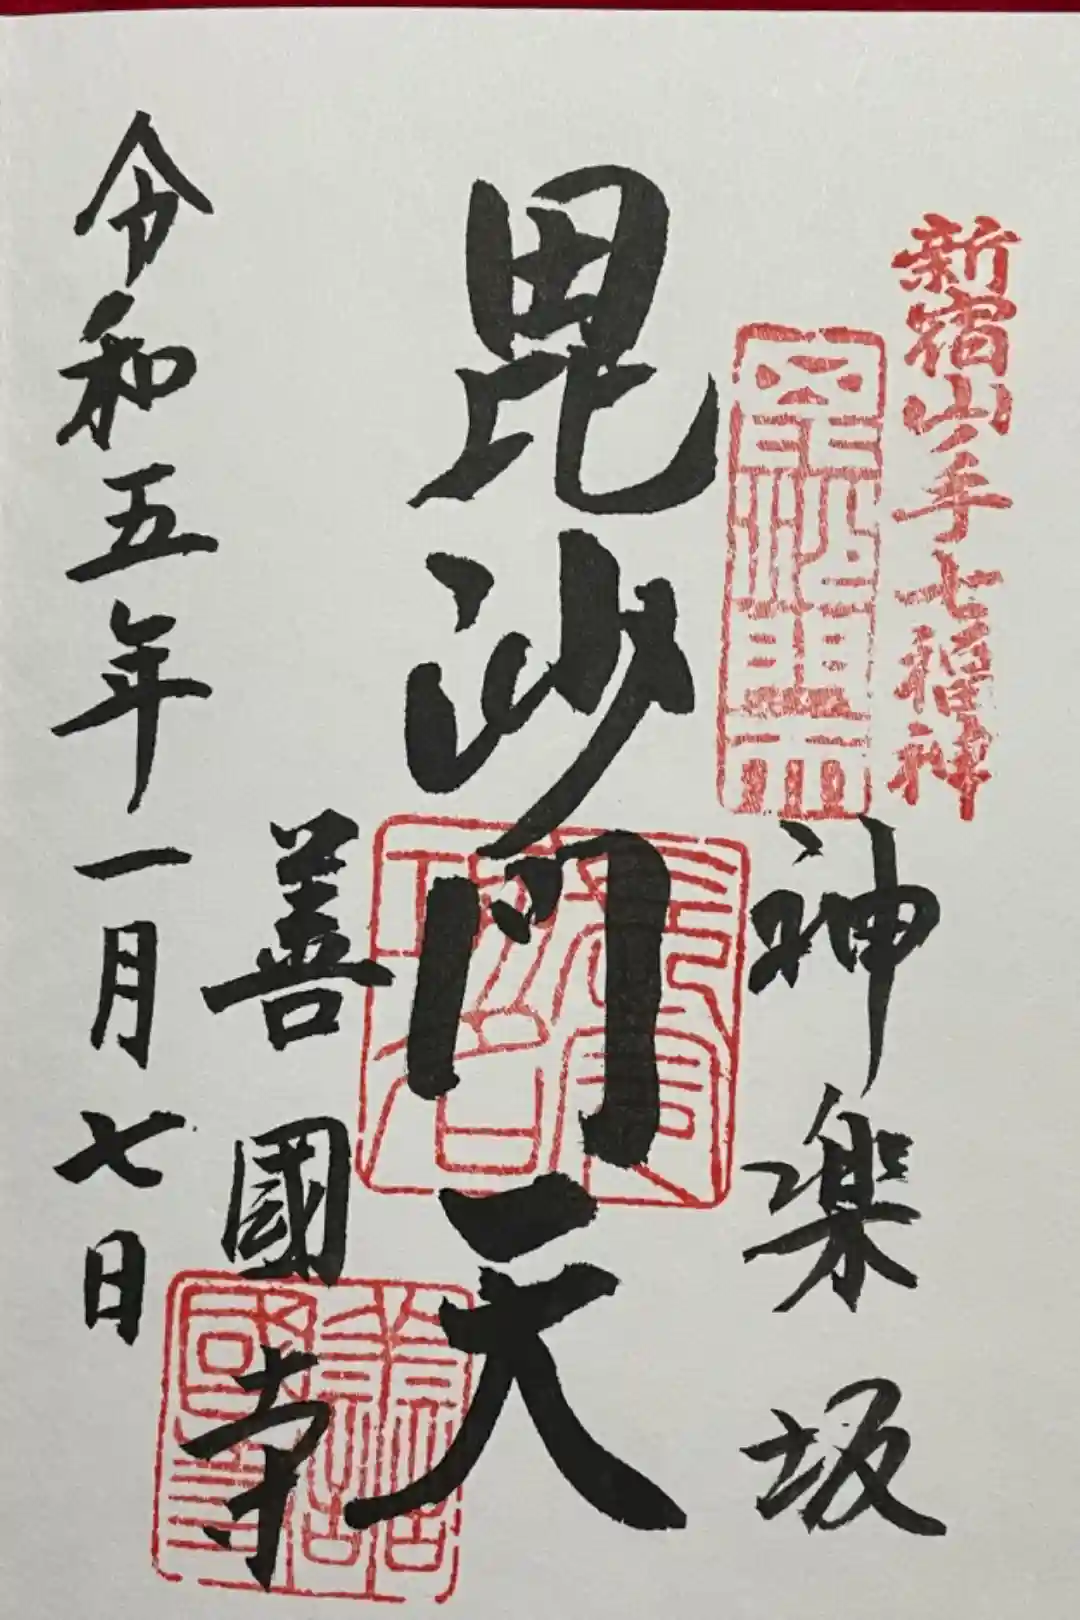 新宿山ノ手七福神
神楽坂
毘沙門天
善國寺
令和五年一月七日
善國寺